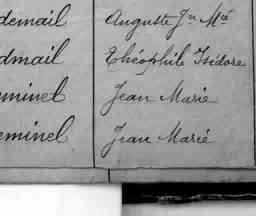 demail Auguste Jn Mie
dmail Théophile Isidore
eminel Jean Marie
eminel Jean Marie